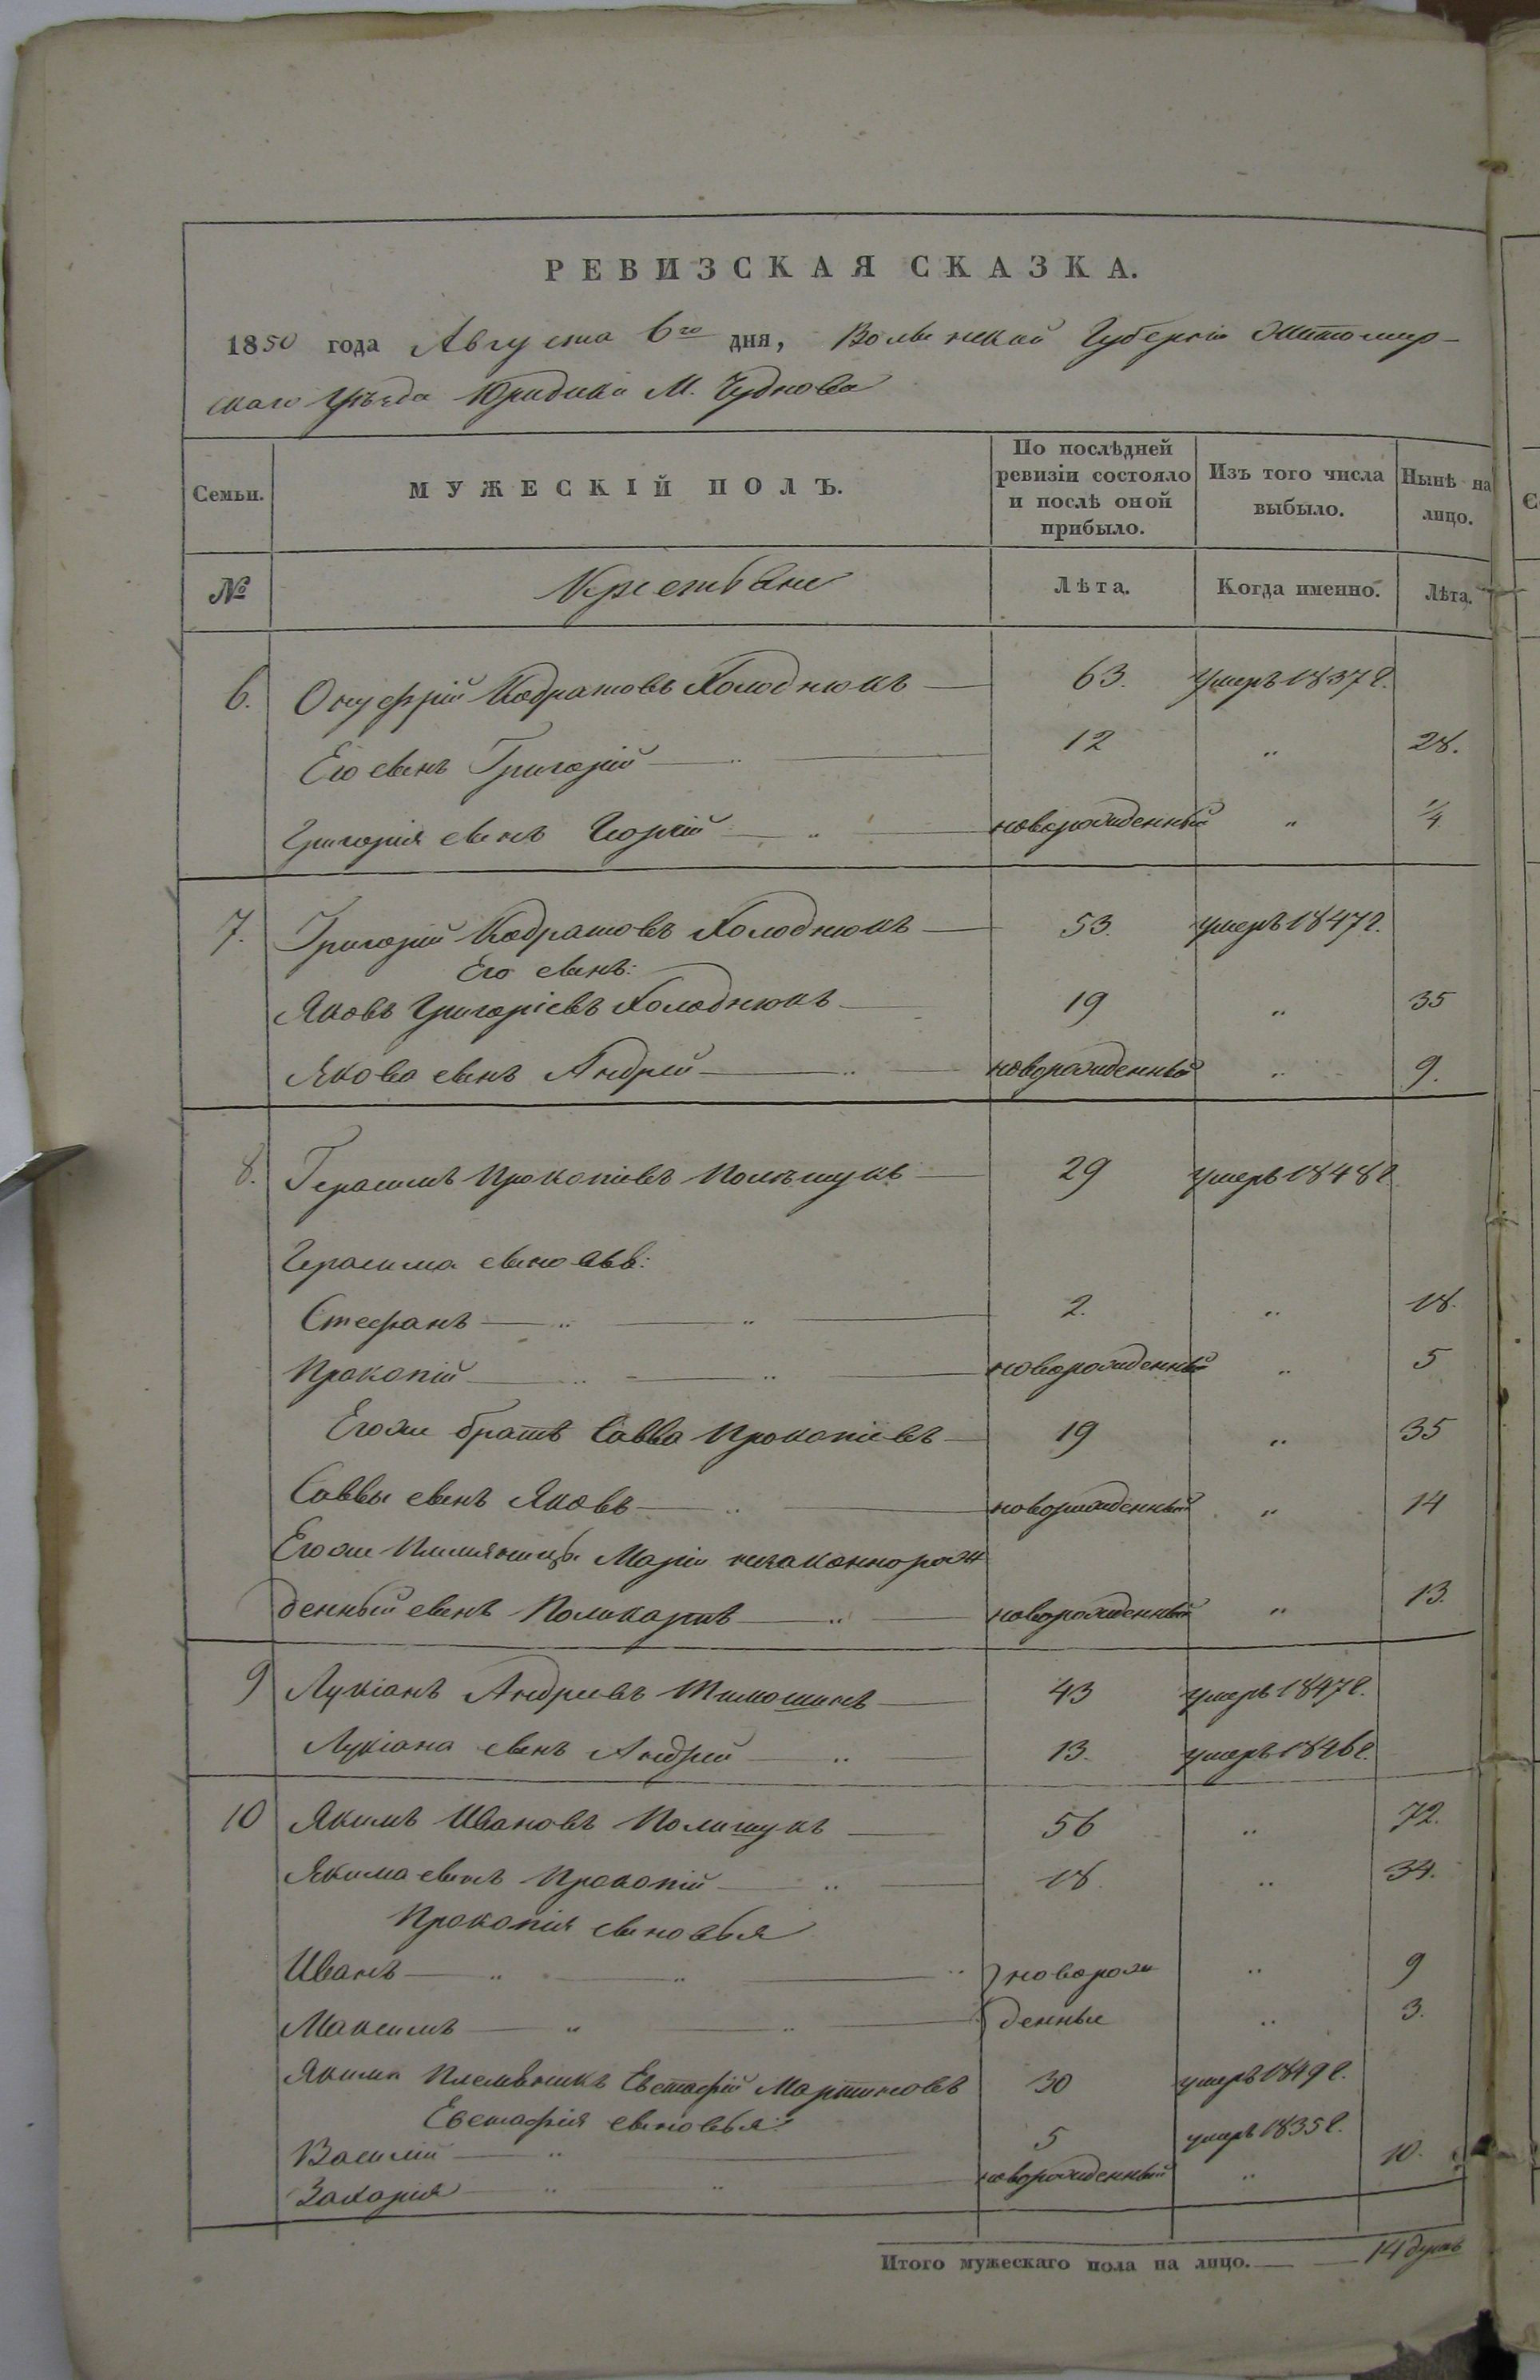 РЕВИЗСКАЯ СКАЗКА.
1850 года Августа 6го дня, Волынской Губерніи Житомир-
скаго Уѣзда Юридики М. Чуднова
Семьи.
МУЖЕСКІЙ ПОЛЪ.
По послѣдней ревизіи состояло и послѣ оной прибыло.
Изъ того числа выбыло.
Нынѣ на лицо.
№ Крестьяне Лѣта. Когда именно. Лѣта.
6. Онуфрій Кодратовъ Холоднюкъ — 63. умеръ 1837 г.
Его сынъ Григорій — „ — 12 „ 28.
Григорія сынъ Георгій — „ — новорожденный „ 1/4
7. Григорій Кодратовъ Холоднюкъ — 53. умеръ 1847 г.
Его сынъ:
Яковъ Григоріевъ Холоднюкъ — 19 „ 35
Якова сынъ Андрей — „ — новорожденный „ 9.
8. Герасимъ Прокопіевъ Полѣщукъ — 29 умеръ 1848 г.
Герасима сыновья:
Стефанъ — „ — „ — 2. „ 18.
Прокопій — „ — „ — новорожденный „ 5
Егоже братъ Савва Прокопіевъ — 19 „ 35
Саввы сынъ Яковъ — „ — новорожденный „ 14
Егоже Племянницы Маріи незаконнорож
денный сынъ Поликарпъ — „ — новорожденный „ 13.
9 Лукіанъ Андреевъ Тимошикъ — 43 умеръ 1847 г.
Лукіана сынъ Андрей — „ — 13. умеръ 1846 г.
10 Якимъ Ивановъ Полищукъ — 56 „ 72.
Якима сынъ Прокопій — „ — 18. „ 34.
Прокопія сыновья
Иванъ — „ — „ — „ новорож „ 9
Максимъ — „ — „ — денные „ 3.
Якима Племѣникъ Евстафій Мартиновъ 30 умеръ 1849 г.
Евстафія сыновья:
Василій — „ — 5 умеръ 1835 г.
Захарія — „ — „ — новорожденный „ 10.
Итого мужескаго пола на лицо. — — 14 душъ